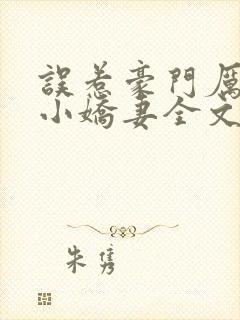 誤惹豪門厲
小嬌妻全文
朱雋